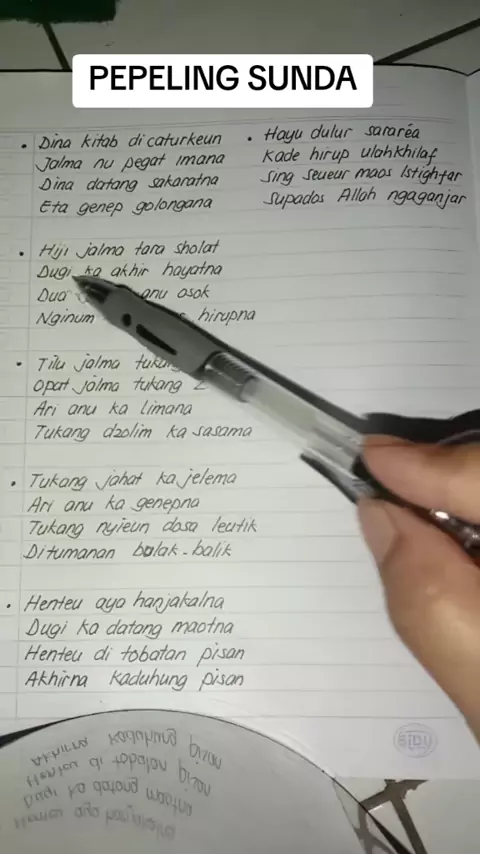 PEPELING SUNDA
• Dina kitab dicaturkeun
Jalma nu pegat imana
Dina datang sakaratna
Eta genep golongana
• Hiji jalma tara sholat
Dugi ka akhir hayatna
Dua anu osok
Nginum hirupna
• Tilu jalma
Opat jalma tukang
Ari anu ka limana
Tukang dzolim ka sasama
• Tukang jahat ka jelema
Ari anu ka genepna
Tukang nyieun dosa leutik
Ditumanan bolak-balik
• Henteu aya hanjakalna
Dugi ka datang maotna
Henteu di tobatan pisan
Akhirna kaduhung pisan
• Hayu dulur sararéa
Kade hirup ulahkhilaf
Sing seueur maos Istighfar
Supados Allah ngaganjar
SIDU
Akhirna kaduhung pisan
Henteu di tobatan pisan
Dugi ka datang maotna
Henteu aya hanjakalna